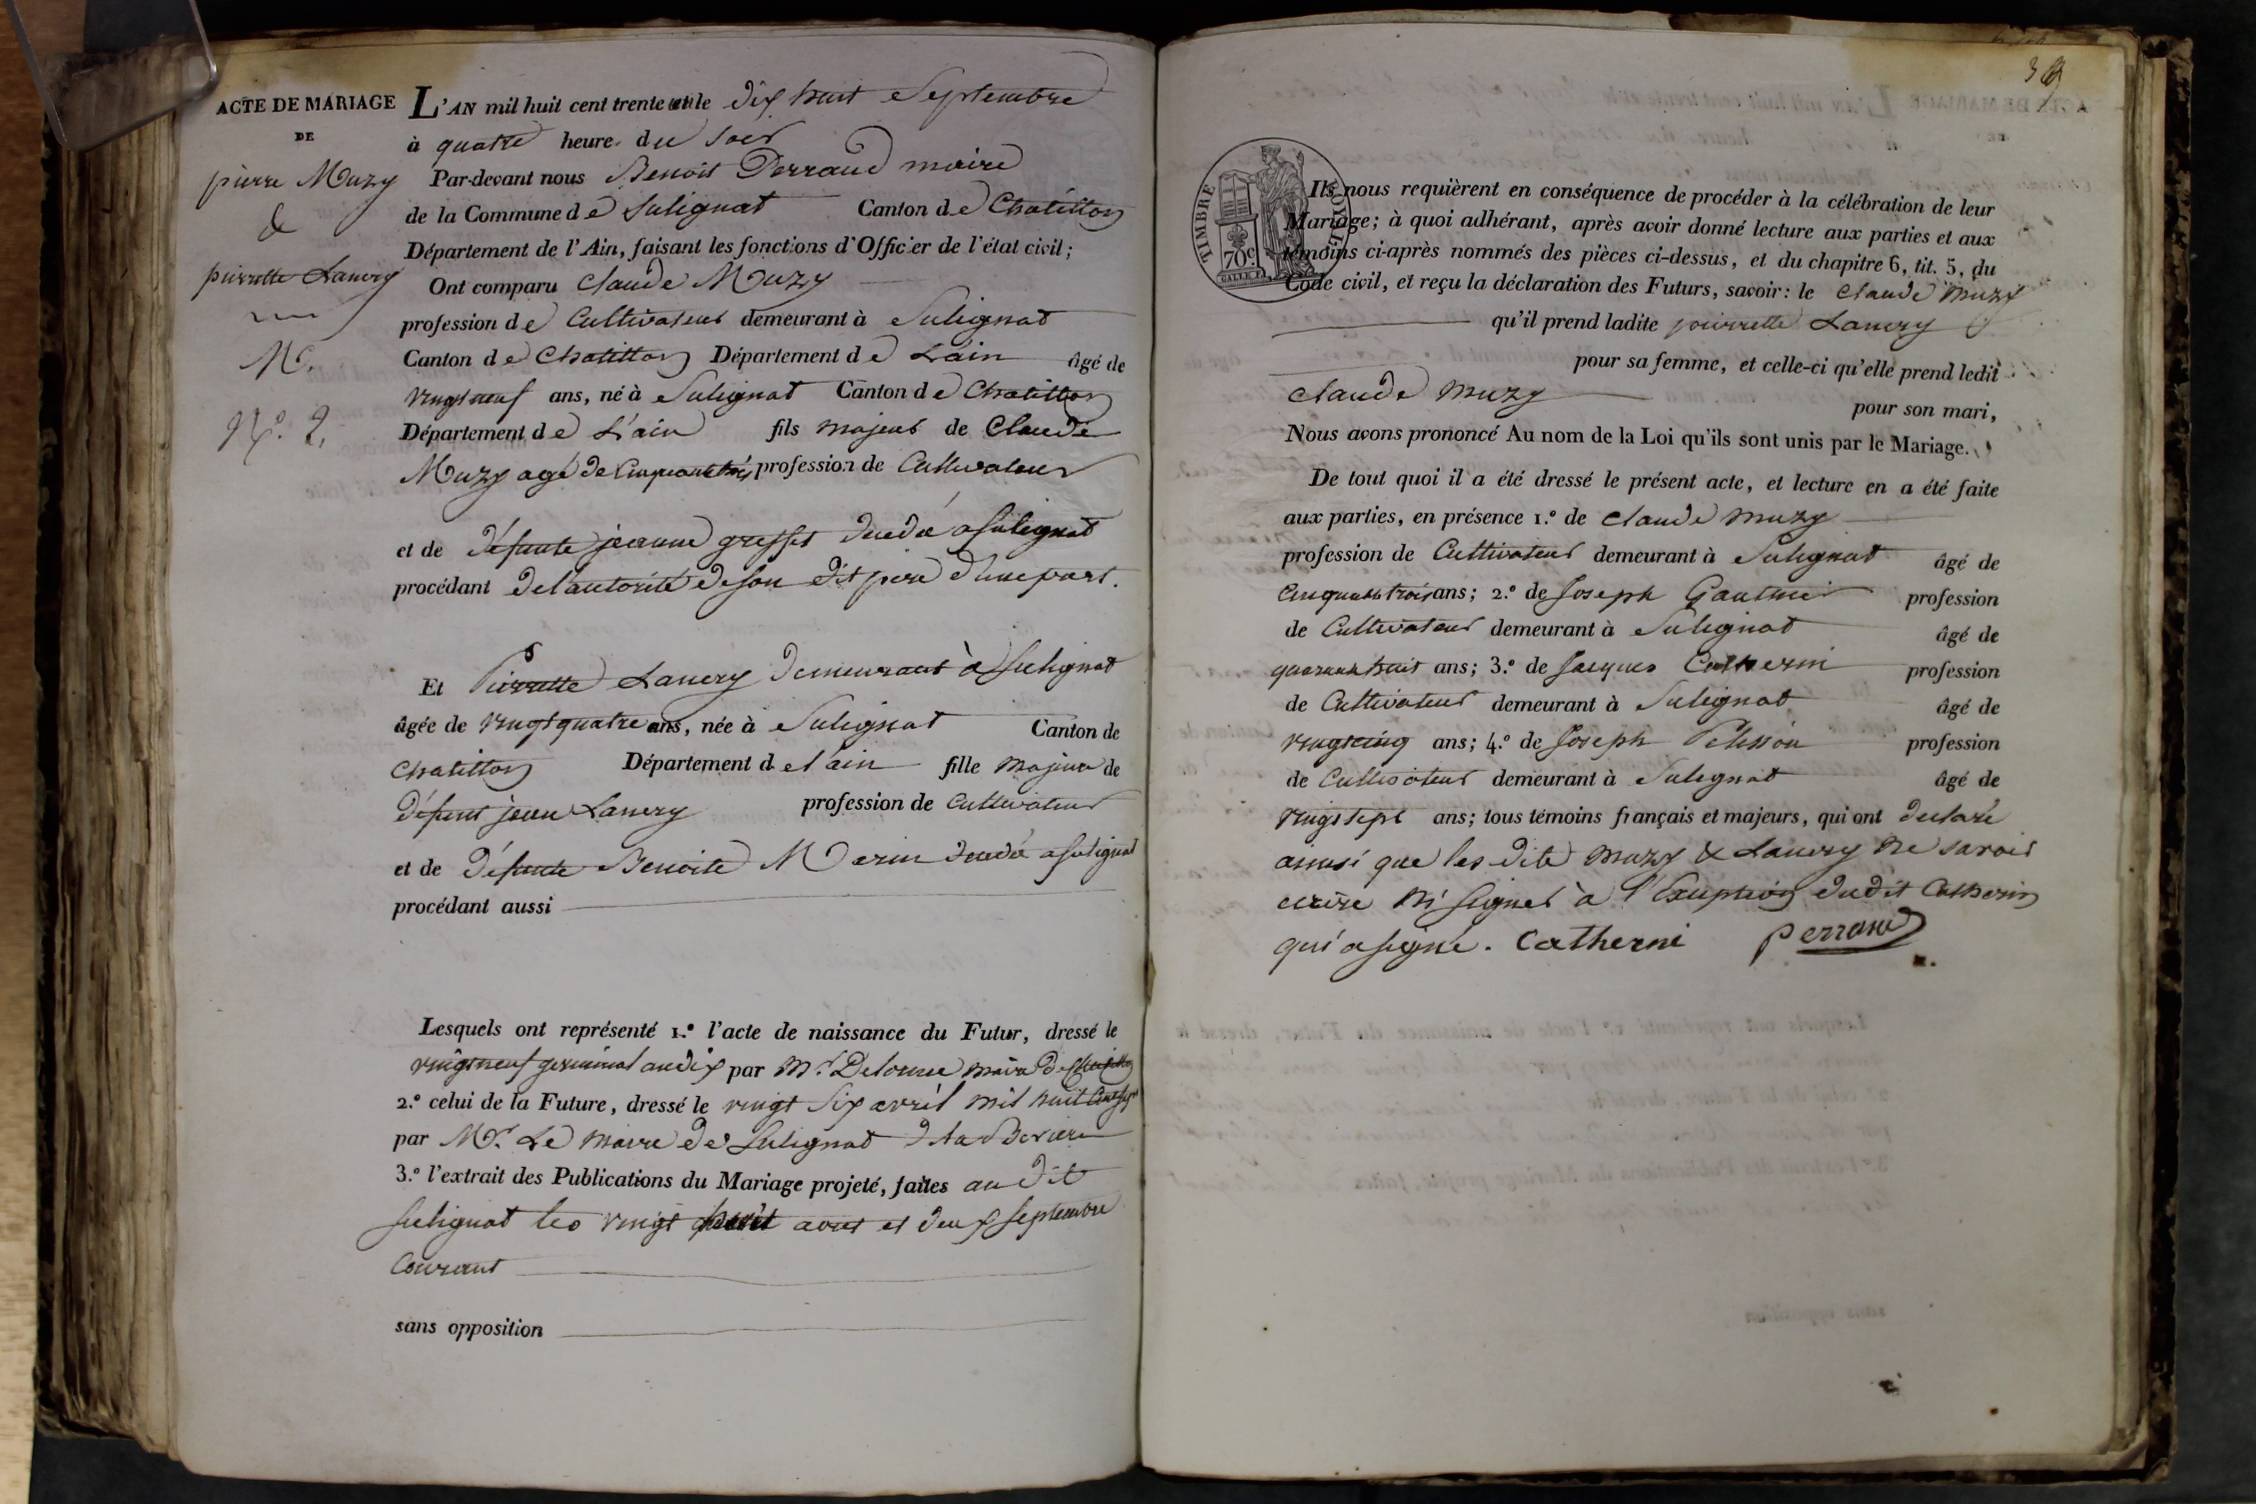 ACTE DE MARIAGE
DE
pierre Muzy
&
pierrette Lanery
N°. 2.
L'AN mil huit cent trente et un le dix huit Septembre
à quatre heure du soir
Par-devant nous Benoit Perraud maire
de la Commune de Sulignat Canton de Chatillon
Département de l'Ain, faisant les fonctions d'Officier de l'état civil;
Ont comparu Claude Muzy
profession de Cultivateur demeurant à Sulignat
Canton de Chatillon Département de Lain âgé de
vingt neuf ans, né à Sulignat Canton de Chatillon
Département de L'ain fils majeur de Claude
Muzy agé de Cinquante trois profession de Cultivateur
et de défunte jeanne greffet décédée a Sulignat
procédant de l'autorité de son dit pere d'une part.
Et Pierrette Lanery demeurant à Sulignat
âgée de vingt quatre ans, née à Sulignat Canton de
Chatillon Département de l'ain fille majeur de
défunt jean Lanery profession de Cultivateur
et de défunte Benoite Merin décédée a Sulignat
procédant aussi
Lesquels ont représenté 1.° l'acte de naissance du Futur, dressé le
vingt neuf germinal an dix par Mr. Delorme maire de
2.° celui de la Future, dressé le vingt six avril mil huit Cent sept
par Mr. Le maire de Sulignat
3.° l'extrait des Publications du Mariage projeté, faites au dit
sulignat les vingt huit aout et deux septembre
Courant
sans opposition
TIMBRE ROYAL
70c.
Ils nous requièrent en conséquence de procéder à la célébration de leur
Mariage; à quoi adhérant, après avoir donné lecture aux parties et aux
témoins ci-après nommés des pièces ci-dessus, et du chapitre 6, tit. 5, du
Code civil, et reçu la déclaration des Futurs, savoir: le Claude Muzy
qu'il prend ladite pierrette Lanery
pour sa femme, et celle-ci qu'elle prend ledit
Claude Muzy pour son mari,
Nous avons prononcé Au nom de la Loi qu'ils sont unis par le Mariage.
De tout quoi il a été dressé le présent acte, et lecture en a été faite
aux parties, en présence 1.° de Claude Muzy
profession de Cultivateur demeurant à Sulignat âgé de
Cinquante trois ans; 2.° de Joseph Gauthier profession
de Cultivateur demeurant à Sulignat âgé de
quarante huit ans; 3.° de Jacques Catherin profession
de Cultivateur demeurant à Sulignat âgé de
vingt cinq ans; 4.° de Joseph Pelisson profession
de Cultivateur demeurant à Sulignat âgé de
vingt sept ans; tous témoins français et majeurs, qui ont declaré
ainsi que les dits Muzy & Lanery ne savoir
ecrire ni signer à l'Exception dudit Catherin
qui a signé. Catherin Perraud